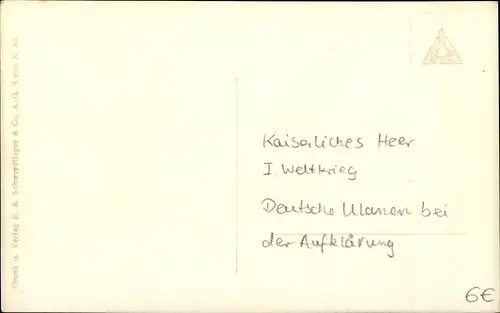 Druck u. Verlag E. A. Schwerdtfeger & Co. A.-G. Berlin N.
Kaiserliches Heer
I. Weltkrieg
Deutsche Ulanen bei
der Aufklärung
6€